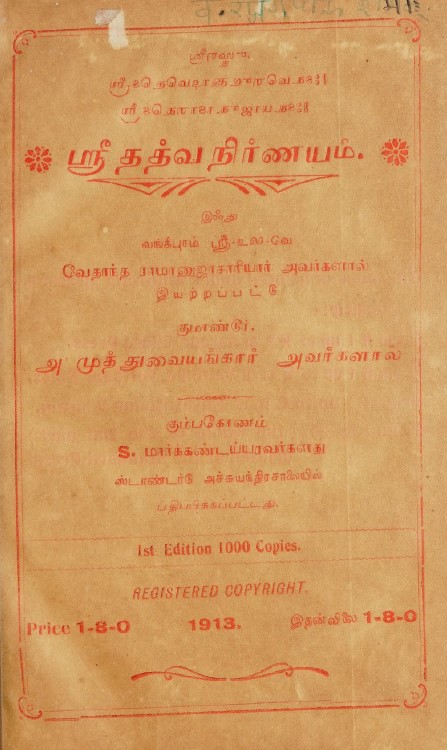 ஸ்ரீ தத்வ நிர்ணயம்.
இஃது
வங்கீபுரம் ஸ்ரீ-உ-வெ
வேதார்த ராமானுஜாசாரியார் அவர்களால்
இயற்றப்பட்டு
குமாண்டூர்,
அ முத்துவையங்கார் அவர்களால்
கும்பகோணம்
S. மார்க்கண்டய்யரவர்களது
ஸ்டாண்டர்டு அச்சுயந்திரசாலையில்
பதிப்பிக்கப்பட்டது.
1st Edition 1000 Copies.
REGISTERED COPYRIGHT.
Price 1-8-0 1913. இதன்விலை 1-8-0